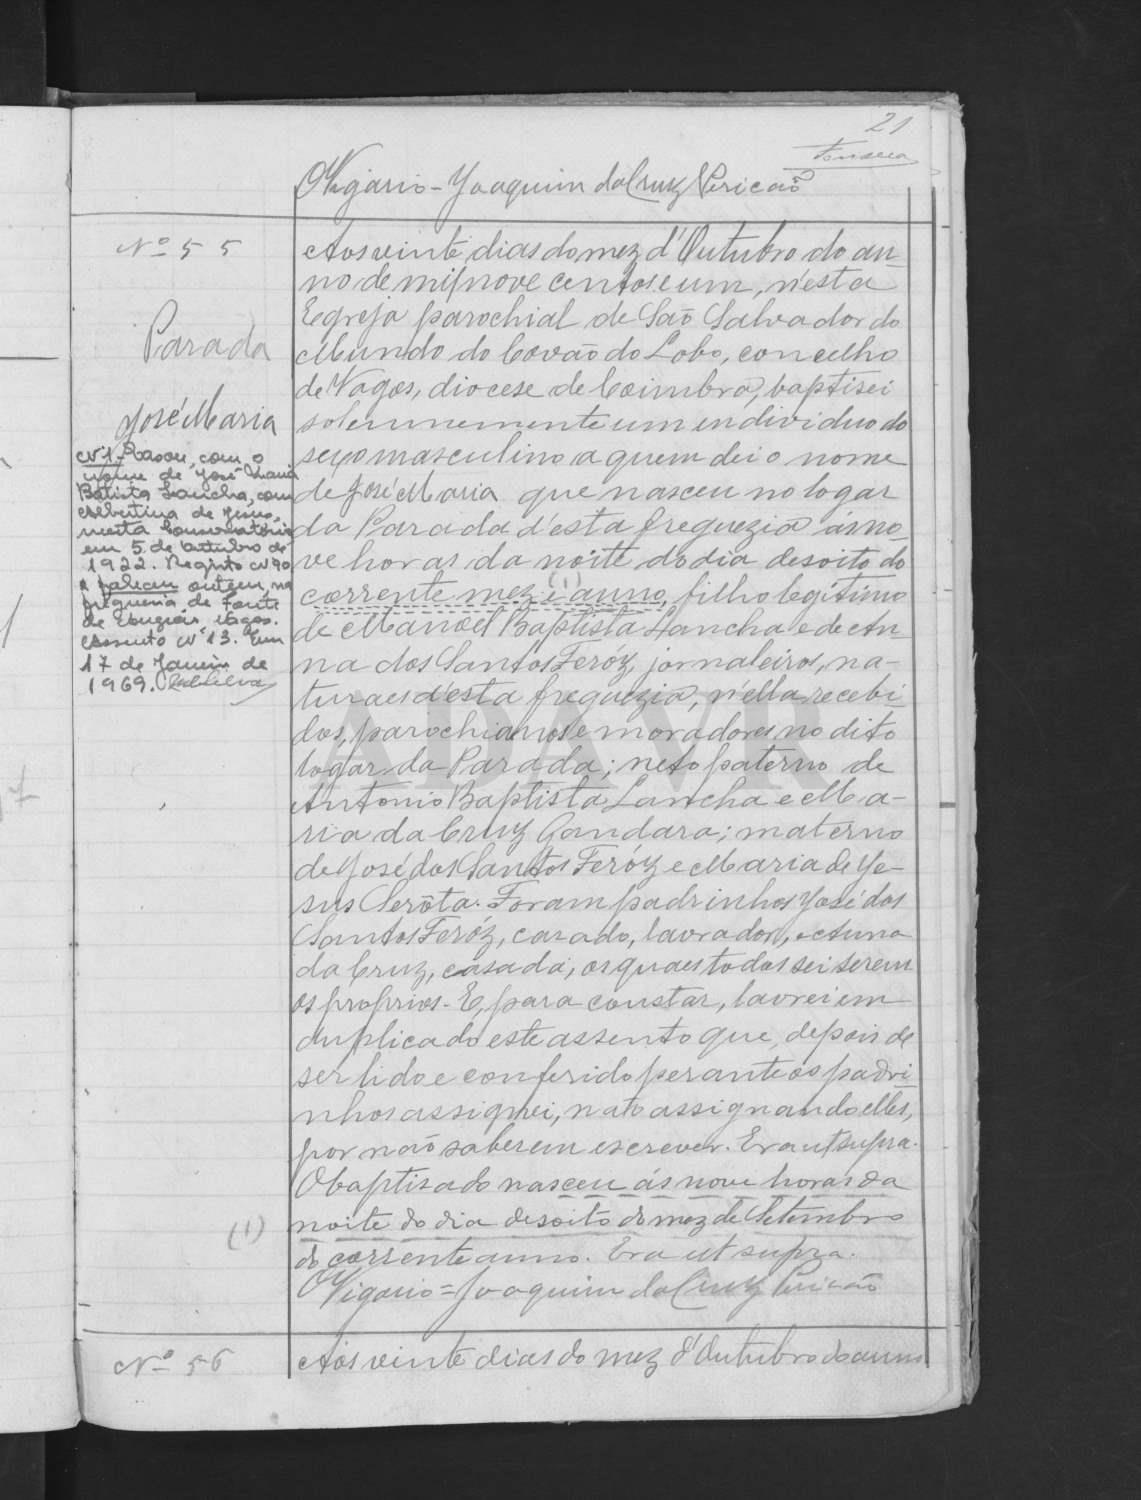 21
Fonseca
O Vigario - Joaquim da Cruz Pericaõ
Nº 55
Parada
José Maria
Nº 1 - Casou, com o
nome de José Maria
Batista Lancha, com
Albertina de Jesus,
nesta Conservatória
em 5 de Outubro de
1922. Registo Nº 90
e faleceu ontem, na
freguesia de Fonte
de Angeão, Vagos.
Assento Nº 13. Em
17 de Janeiro de
1969.
Aos vinte dias do mez d'Outubro do an-
no de mil nove centos e um, n'esta
Egreja parochial de Saõ Salvador do
Mundo do Covaõ do Lobo, concelho
de Vagos, diocese de Coimbra, baptisei
solemnemente um individuo do
sexo masculino a quem dei o nome
de José Maria que nasceu no logar
da Parada d'esta freguezia ás no-
ve horas da noite do dia desoito do
corrente mez e anno, (1) filho legitimo
de Manoel Baptista Lancha e de An-
na dos Santos Feróz, jornaleiros, na-
turaes d'esta freguezia, n'ella recebi-
dos, parochianos e moradores no dito
logar da Parada; neto paterno de
Antonio Baptista Lancha e Ma-
ria da Cruz Gandara; materno
de José dos Santos Feróz e Maria de Je-
sus Serôta. Foram padrinhos José dos
Santos Feróz, casado, lavrador, e Anna
da Cruz, casada, os quaes todos sei serem
os proprios. E, para constar, lavrei em
duplicado este assento que, depois de
ser lido e conferido perante os padri-
nhos assignei, naõ assignando elles,
por naõ saberem escrever. Era ut supra.
O baptisado nasceu ás nove horas da
(1) noite do dia desoito do mez de Setembro
do corrente anno. Era ut supra.
O Vigario = Joaquim da Cruz Pericaõ
Nº 56
Aos vinte dias do mez d'Outubro do anno
ADAVR